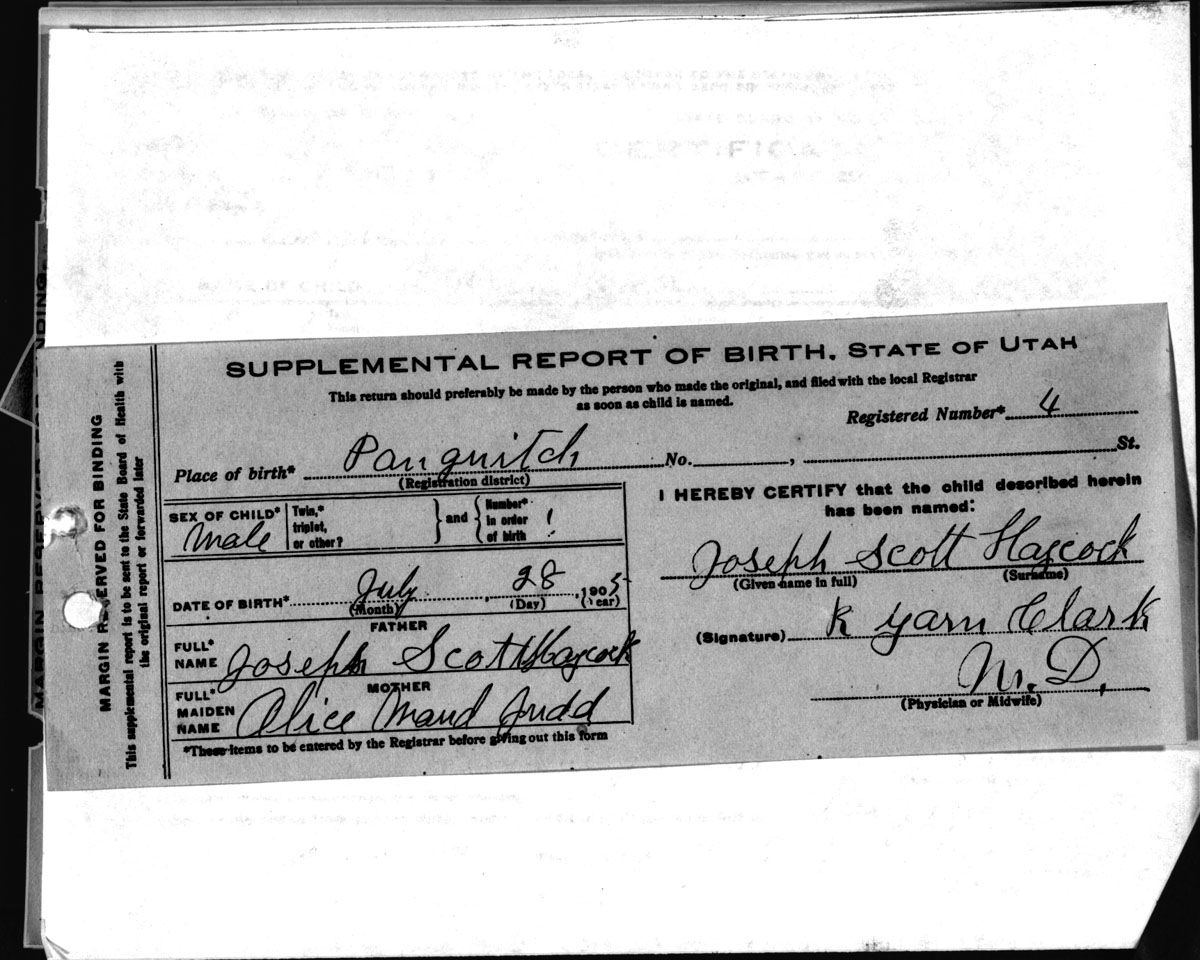 SUPPLEMENTAL REPORT OF BIRTH. STATE OF UTAH
This return should preferably be made by the person who made the original, and filed with the local Registrar
as soon as child is named.
Registered Number* 4
Place of birth* Panguitch No. , St.
(Registration district)
SEX OF CHILD* Male
Twin,* triplet, or other?
and
Number* in order of birth
DATE OF BIRTH* July , 28 , 1905
(Month) (Day) (Year)
FATHER
FULL* NAME Joseph Scott Haycock
MOTHER
FULL* MAIDEN NAME Alice Maud Judd
*These items to be entered by the Registrar before giving out this form
I HEREBY CERTIFY that the child described herein
has been named:
Joseph Scott Haycock
(Given name in full) (Surname)
(Signature) Clark
M. D.
(Physician or Midwife)
MARGIN RESERVED FOR BINDING
This supplemental report is to be sent to the State Board of Health with
the original report or forwarded later